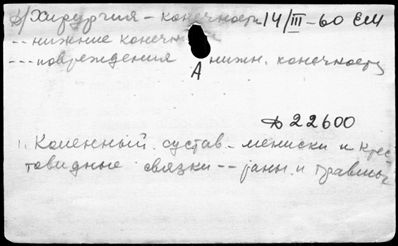 Хирургия - конечности 14/III-60 ЕМ
-- нижние конечн
--- повреждения нижн. конечности
А
Д 22600
1. Коленный сустав - мениски и крес-
товидные связки -- раны и травмы